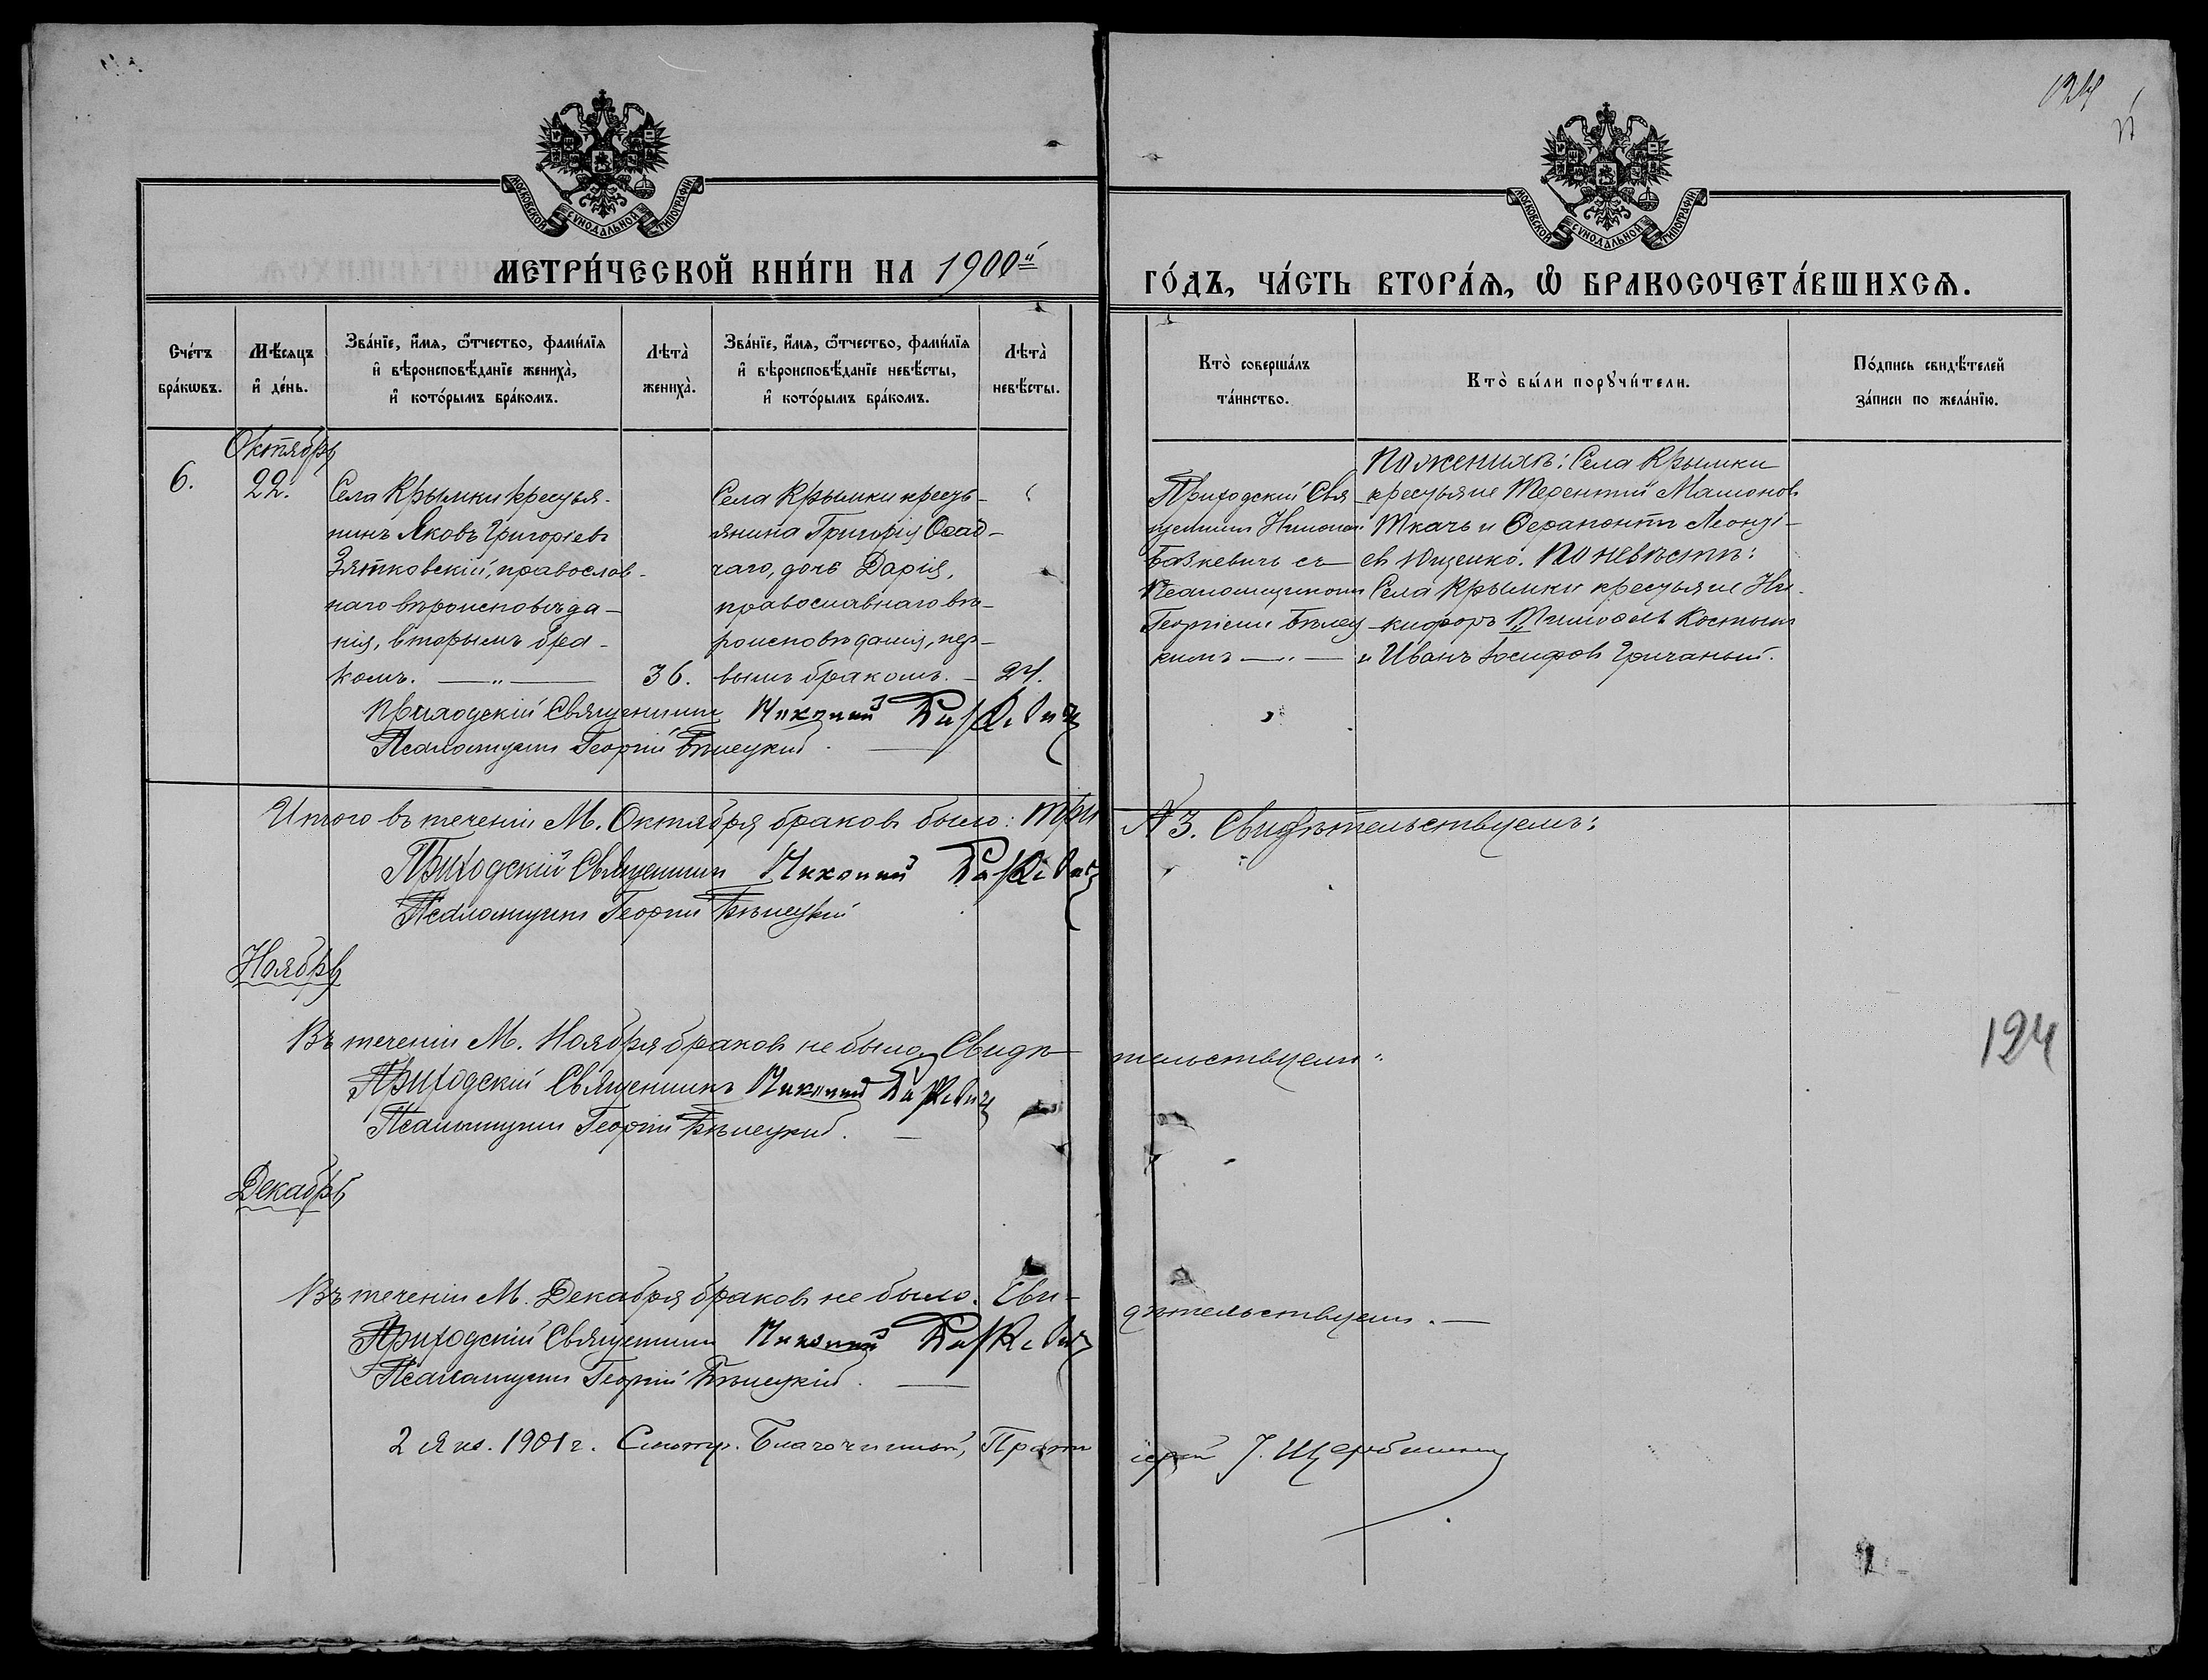 124
МОСКОВСКОЙ СѴНОДАЛЬНОЙ ТИПОГРАФІИ
МОСКОВСКОЙ СѴНОДАЛЬНОЙ ТИПОГРАФІИ
МЕТРИ́ЧЕСКОЙ КНИ́ГИ НА 1900й
ГО́ДЪ, ЧА́СТЬ ВТОРА́Ѧ, Ѽ БРАКОСОЧЕТА́ВШИХСѦ.
Сче́тъ бра́кѡвъ.
Мѣ́сяцъ и҆ де́нь.
Зва́нїе, и҆́мѧ, ѻ҆́тчество, фамѝлїѧ и҆ вѣроисповѣ́данїе жениха̀, и҆ кото́рымъ бра́комъ.
Лѣта̀ жениха̀.
Зва́нїе, и҆́мѧ, ѻ҆́тчество, фамѝлїѧ и҆ вѣроисповѣ́данїе невѣ́сты, и҆ кото́рымъ бра́комъ.
Лѣта̀ невѣ́сты.
Кто̀ соверша́лъ та́инство.
Кто̀ бы́ли порꙋчи́тели.
По́дпись свидѣ́телей за́писи по жела́нїю.
Октябрь
6.
22.
Села Крымки крестья-
нинъ Яковъ Григоріевъ
Зятковскій, православ-
наго вѣроисповѣда-
нія, вторымъ бра-
комъ. —"—
36.
Села Крымки кресть-
янина Григорія Осад-
чаго, дочь Дарія,
православнаго вѣ-
роисповѣданія, пер-
вымъ бракомъ. —
24.
Приходскій Свя-
щенникъ Николай
Базкевичъ съ
Псаломщикомъ
Георгіемъ Бѣлец-
кимъ —"—
По женихѣ: Села Крымки
крестьяне Терентій
Ткачъ и Ферапонтъ Леонті-
евъ Ющенко. По невѣстѣ:
Села Крымки крестьяне Ни-
кифоръ Тимофѣевъ
и Иванъ Іосифовъ Гричаный.
Приходскій Священникъ Николай Базкевичъ
Псаломщикъ Георгій Бѣлецкій. —
Итого въ теченіи М. Октября браковъ было: три
№ 3. Свидѣтельствуемъ:
Приходскій Священникъ Николай Базкевичъ
Псаломщикъ Георгій Бѣлецкій
Ноябрь
Въ теченіи М. Ноября браковъ не было. Свидѣ-
тельствуемъ:
124
Приходскій Священникъ Николай Базкевичъ
Псаломщикъ Георгій Бѣлецкій. —
Декабрь
Въ теченіи М. Декабря браковъ не было. Сви-
дѣтельствуемъ. —
Приходскій Священникъ Николай Базкевичъ
Псаломщикъ Георгій Бѣлецкій. —
2 Янв. 1901 г. Смотр. Благочинный, Прото
іерей І.